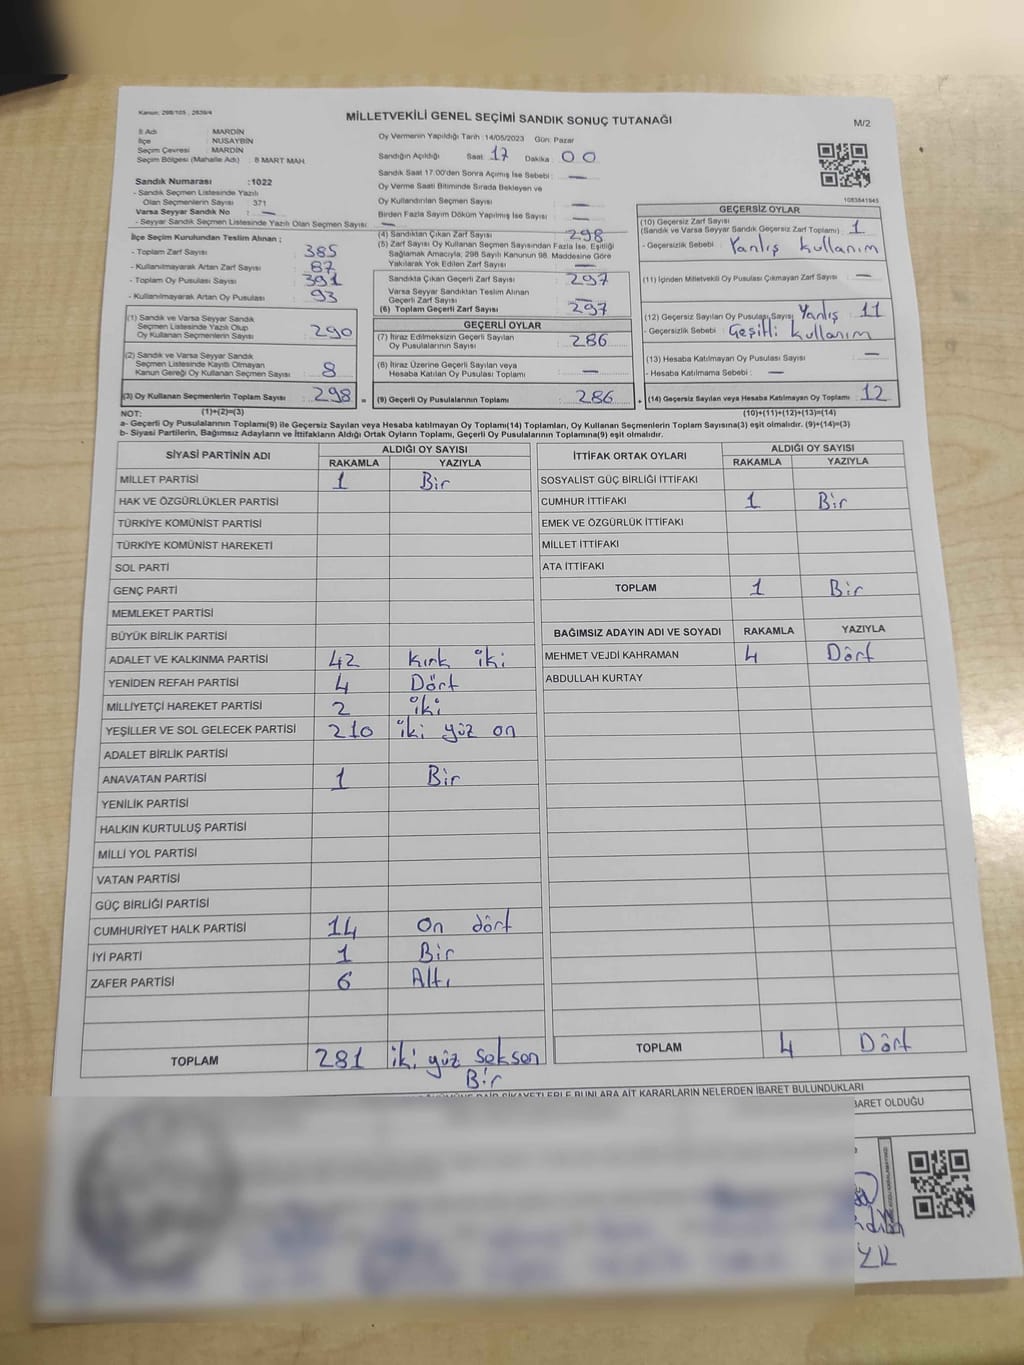 Kanun: 298/105 , 2839/4
MİLLETVEKİLİ GENEL SEÇİMİ SANDIK SONUÇ TUTANAĞI
M/2
İl Adı : MARDİN
İlçe : NUSAYBİN
Seçim Çevresi : MARDİN
Seçim Bölgesi (Mahalle Adı) : 8 MART MAH.
Oy Vermenin Yapıldığı Tarih :14/05/2023 Gün: Pazar
Sandığın Açıldığı Saat: 17 Dakika : 00
Sandık Saat 17:00'den Sonra Açımış İse Sebebi : —
Oy Verme Saati Bitiminde Sırada Bekleyen ve
Oy Kullandırılan Seçmen Sayısı : —
Birden Fazla Sayım Döküm Yapılmış İse Sayısı : —
1083841945
Sandık Numarası :1022
- Sandık Seçmen Listesinde Yazılı
Olan Seçmenlerin Sayısı : 371
Varsa Seyyar Sandık No : —
- Seyyar Sandık Seçmen Listesinde Yazılı Olan Seçmen Sayısı : —
İlçe Seçim Kurulundan Teslim Alınan ;
- Toplam Zarf Sayısı : 385
- Kullanılmayarak Artan Zarf Sayısı : 87
- Toplam Oy Pusulası Sayısı : 391
- Kullanılmayarak Artan Oy Pusulası : 93
(1) Sandık ve Varsa Seyyar Sandık
Seçmen Listesinde Yazılı Olup
Oy Kullanan Seçmenlerin Sayısı : 290
(2) Sandık ve Varsa Seyyar Sandık
Seçmen Listesinde Kayıtlı Olmayan
Kanun Gereği Oy Kullanan Seçmen Sayısı : 8
(3) Oy Kullanan Seçmenlerin Toplam Sayısı : 298 =
(4) Sandıktan Çıkan Zarf Sayısı : 298
(5) Zarf Sayısı Oy Kullanan Seçmen Sayısından Fazla İse, Eşitliği
Sağlamak Amacıyla; 298 Sayılı Kanunun 98. Maddesine Göre
Yakılarak Yok Edilen Zarf Sayısı : —
Sandıkta Çıkan Geçerli Zarf Sayısı : 297
Varsa Seyyar Sandıktan Teslim Alınan
Geçerli Zarf Sayısı : —
(6) Toplam Geçerli Zarf Sayısı : 297
GEÇERLİ OYLAR
(7) İtiraz Edilmeksizin Geçerli Sayılan
Oy Pusulalarının Sayısı : 286
(8) İtiraz Üzerine Geçerli Sayılan veya
Hesaba Katılan Oy Pusulası Toplamı : —
(9) Geçerli Oy Pusulalarının Toplamı : 286 +
GEÇERSİZ OYLAR
(10) Geçersiz Zarf Sayısı
(Sandık ve Varsa Seyyar Sandık Geçersiz Zarf Toplamı) : 1
- Geçersizlik Sebebi : Yanlış kullanım
(11) İçinden Milletvekili Oy Pusulası Çıkmayan Zarf Sayısı : —
(12) Geçersiz Sayılan Oy Pusulası Sayısı : Yanlış 11
- Geçersizlik Sebebi : Çeşitli kullanım
(13) Hesaba Katılmayan Oy Pusulası Sayısı : —
- Hesaba Katılmama Sebebi : —
(14) Geçersiz Sayılan veya Hesaba Katılmayan Oy Toplamı : 12
NOT: (1)+(2)=(3) (10)+(11)+(12)+(13)=(14)
a- Geçerli Oy Pusulalarının Toplamı(9) ile Geçersiz Sayılan veya Hesaba katılmayan Oy Toplam(14) Toplamları, Oy Kullanan Seçmenlerin Toplam Sayısına(3) eşit olmalıdır. (9)+(14)=(3)
b- Siyasi Partilerin, Bağımsız Adayların ve İttifakların Aldığı Ortak Oyların Toplamı, Geçerli Oy Pusulalarının Toplamına(9) eşit olmalıdır.
SİYASİ PARTİNİN ADI ALDIĞI OY SAYISI
RAKAMLA YAZIYLA
MİLLET PARTİSİ 1 Bir
HAK VE ÖZGÜRLÜKLER PARTİSİ
TÜRKİYE KOMÜNİST PARTİSİ
TÜRKİYE KOMÜNİST HAREKETİ
SOL PARTİ
GENÇ PARTİ
MEMLEKET PARTİSİ
BÜYÜK BİRLİK PARTİSİ
ADALET VE KALKINMA PARTİSİ 42 Kırk iki
YENİDEN REFAH PARTİSİ 4 Dört
MİLLİYETÇİ HAREKET PARTİSİ 2 iki
YEŞİLLER VE SOL GELECEK PARTİSİ 210 iki yüz on
ADALET BİRLİK PARTİSİ
ANAVATAN PARTİSİ 1 Bir
YENİLİK PARTİSİ
HALKIN KURTULUŞ PARTİSİ
MİLLİ YOL PARTİSİ
VATAN PARTİSİ
GÜÇ BİRLİĞİ PARTİSİ
CUMHURİYET HALK PARTİSİ 14 on dört
İYİ PARTİ 1 Bir
ZAFER PARTİSİ 6 Altı
TOPLAM 281 iki yüz seksen
Bir
İTTİFAK ORTAK OYLARI ALDIĞI OY SAYISI
RAKAMLA YAZIYLA
SOSYALİST GÜÇ BİRLİĞİ İTTİFAKI
CUMHUR İTTİFAKI 1 Bir
EMEK VE ÖZGÜRLÜK İTTİFAKI
MİLLET İTTİFAKI
ATA İTTİFAKI
TOPLAM 1 Bir
BAĞIMSIZ ADAYIN ADI VE SOYADI RAKAMLA YAZIYLA
MEHMET VEJDİ KAHRAMAN 4 Dört
ABDULLAH KURTAY
TOPLAM 4 Dört
ŞİKAYETLERLE BUNLARA AİT KARARLARIN NELERDEN İBARET BULUNDUKLARI
BARET OLDUĞU